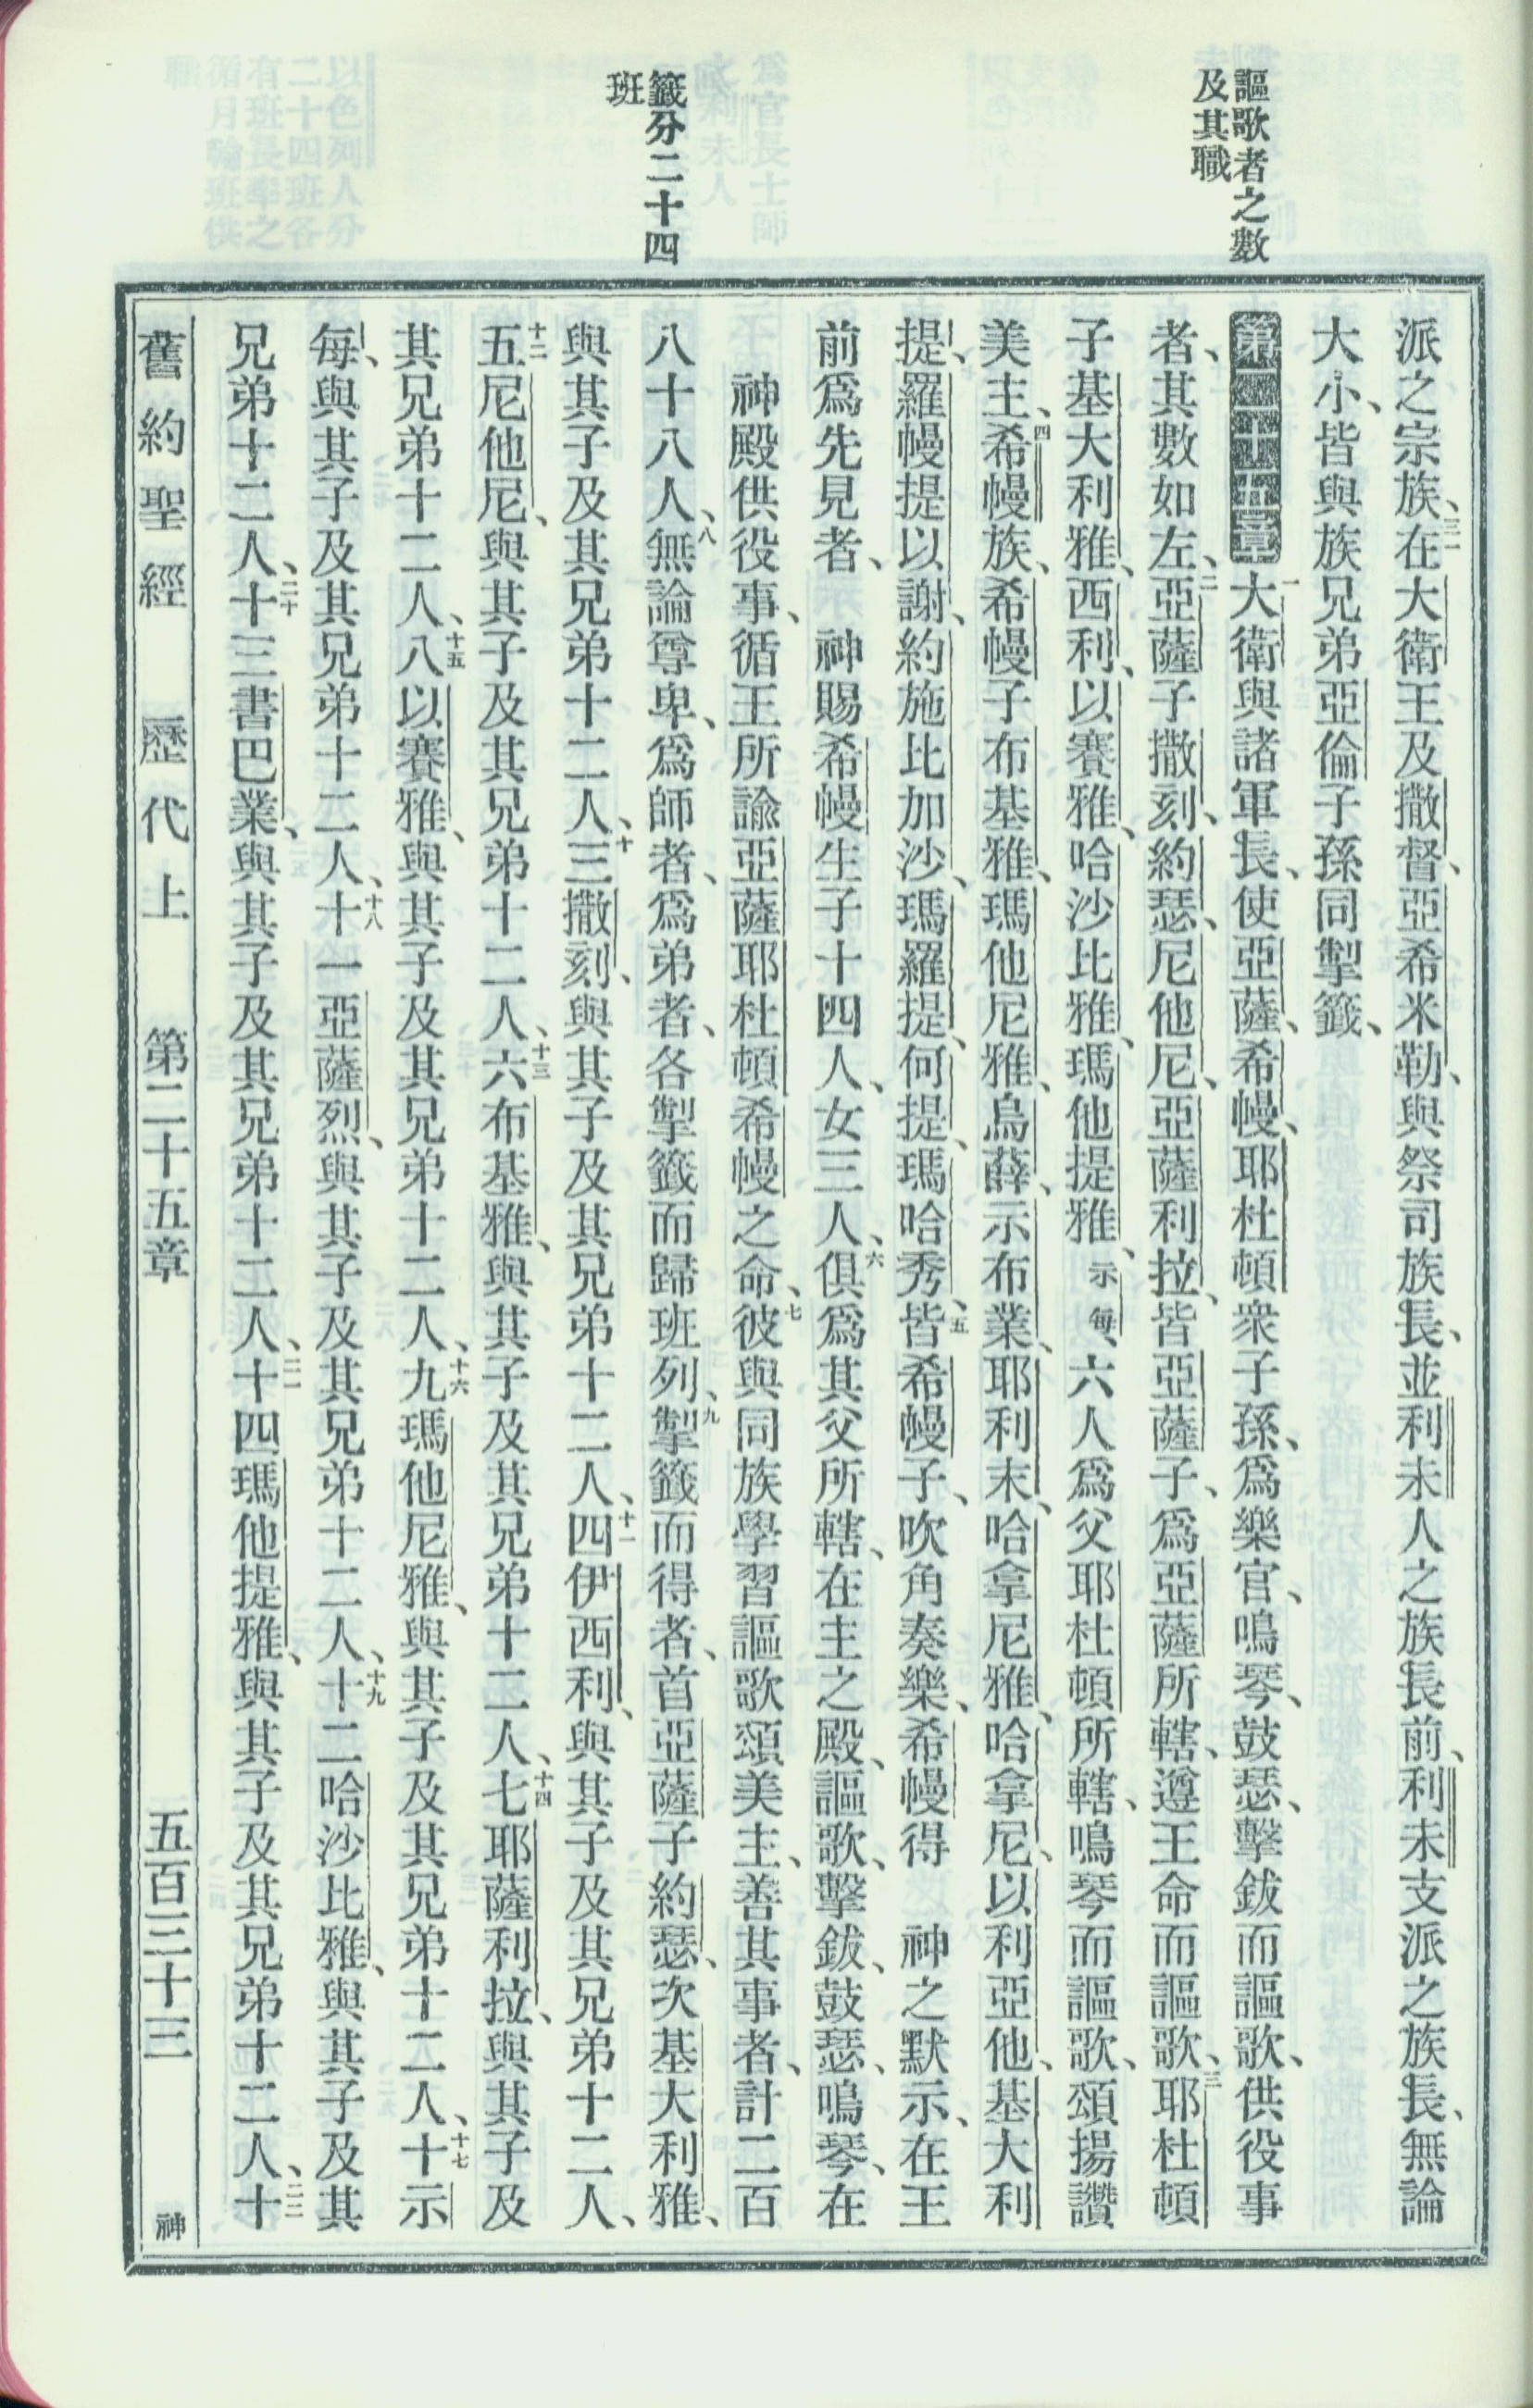 謳歌者之數
及其職
籤分二十四
班
派之宗族、三一在大衛王及撒督、亞希米勒、與祭司族長、並利未人之族長前、利未支派之族長、無論
大小、皆與族兄弟亞倫子孫同掣籤、
第二十五章 一大衛與諸軍長、使亞薩、希幔、耶杜頓衆子孫、爲樂官、鳴琴、鼓瑟、擊鈸而謳歌、供役事
者、其數如左、二亞薩子撒刻、約瑟、尼他尼、亞薩利拉、皆亞薩子、爲亞薩所轄、遵王命而謳歌、三耶杜頓
子基大利雅、西利、以賽雅、哈沙比雅、瑪他提雅、示每、六人爲父耶杜頓所轄、鳴琴而謳歌、頌揚讚
美主、四希幔族、希幔子布基雅、瑪他尼雅、烏薛、示布業、耶利末、哈拿尼雅、哈拿尼、以利亞他、基大利
提、羅幔提以謝、約施比加沙、瑪羅提、何提、瑪哈秀、五皆希幔子、吹角奏樂、希幔得 神之默示、在王
前爲先見者、 神賜希幔生子十四人、女三人、六俱爲其父所轄、在主之殿、謳歌、擊鈸、鼓瑟、鳴琴、在
神殿供役事、循王所諭亞薩耶杜頓希幔之命、七彼與同族學習謳歌頌美主、善其事者、計二百
八十八人、八無論尊卑、爲師者、爲弟者、各掣籤而歸班列、九掣籤而得者、首亞薩子約瑟、次基大利雅、
與其子及其兄弟十二人、十三撒刻、與其子及其兄弟十二人、十一四伊西利、與其子及其兄弟十二人、
十二五尼他尼、與其子及其兄弟十二人、十三六布基雅、與其子及其兄弟十二人、十四七耶薩利拉、與其子及
其兄弟十二人、十五八以賽雅、與其子及其兄弟十二人、十六九瑪他尼雅、與其子及其兄弟十二人、十七十示
每、與其子及其兄弟十二人、十八十一亞薩烈、與其子及其兄弟十二人、十九十二哈沙比雅、與其子及其
兄弟十二人、二十十三書巴業、與其子及其兄弟十二人、二一十四瑪他提雅、與其子及其兄弟十二人、二二十
舊約聖經 歷代上 第二十五章 五百三十三 神